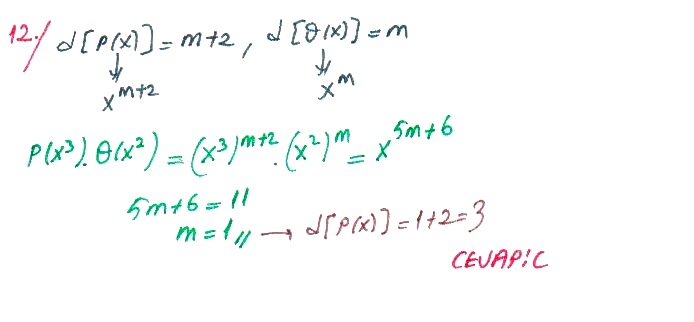 12./ d[P(x)] = m+2, d[Q(x)] = m
↓ ↓
x^{m+2} x^m
P(x³).Q(x²) = (x³)^{m+2}.(x²)^m = x^{5m+6}
5m+6 = 11
m = 1,, → d[P(x)] = 1+2 = 3
CEVAP:C